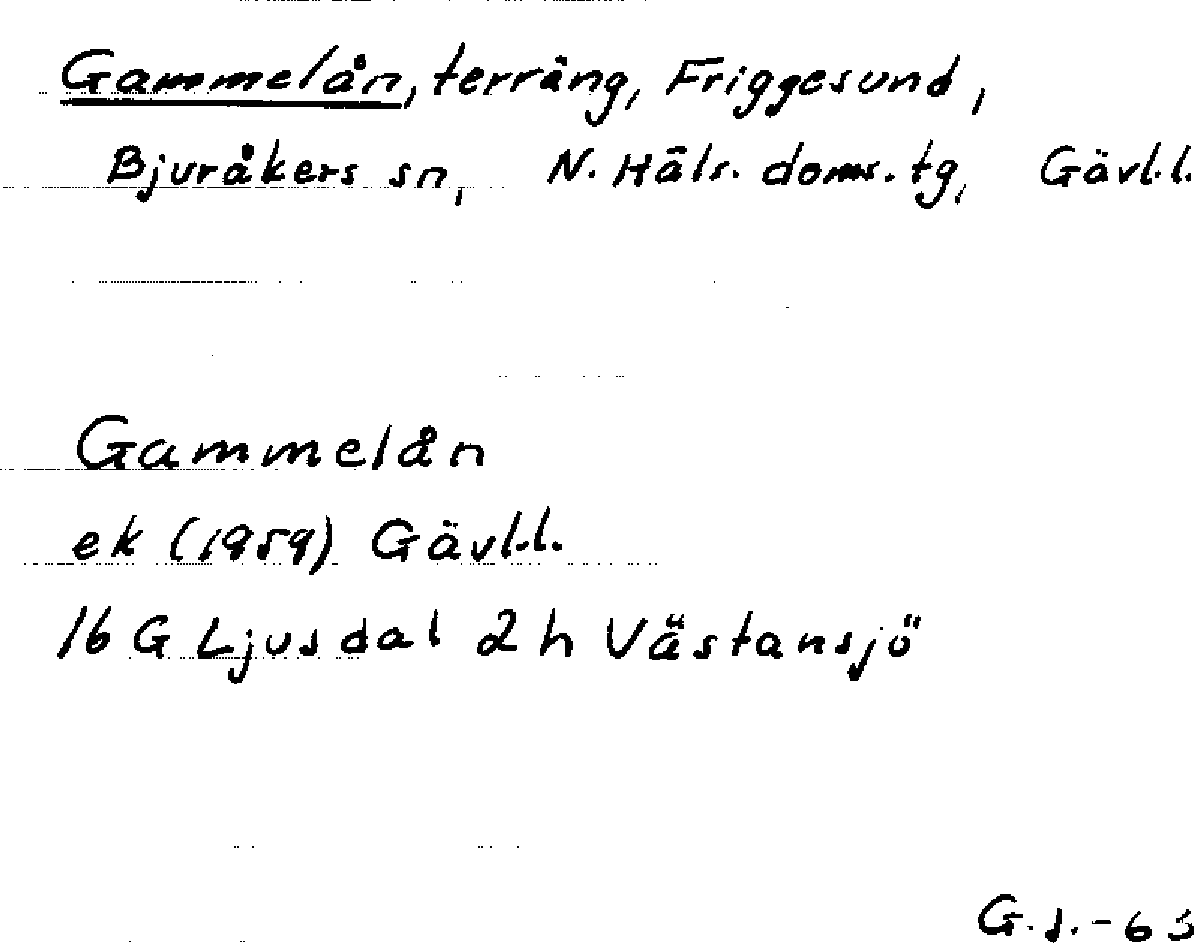 Gammelån, terräng, Friggesund,
Bjuråkers sn, N. Häls. doms. tg, Gävl.l.
Gammelån
ek (1959) Gävl.l.
16 G Ljusdal 2 h Västansjö
G. J. - 63